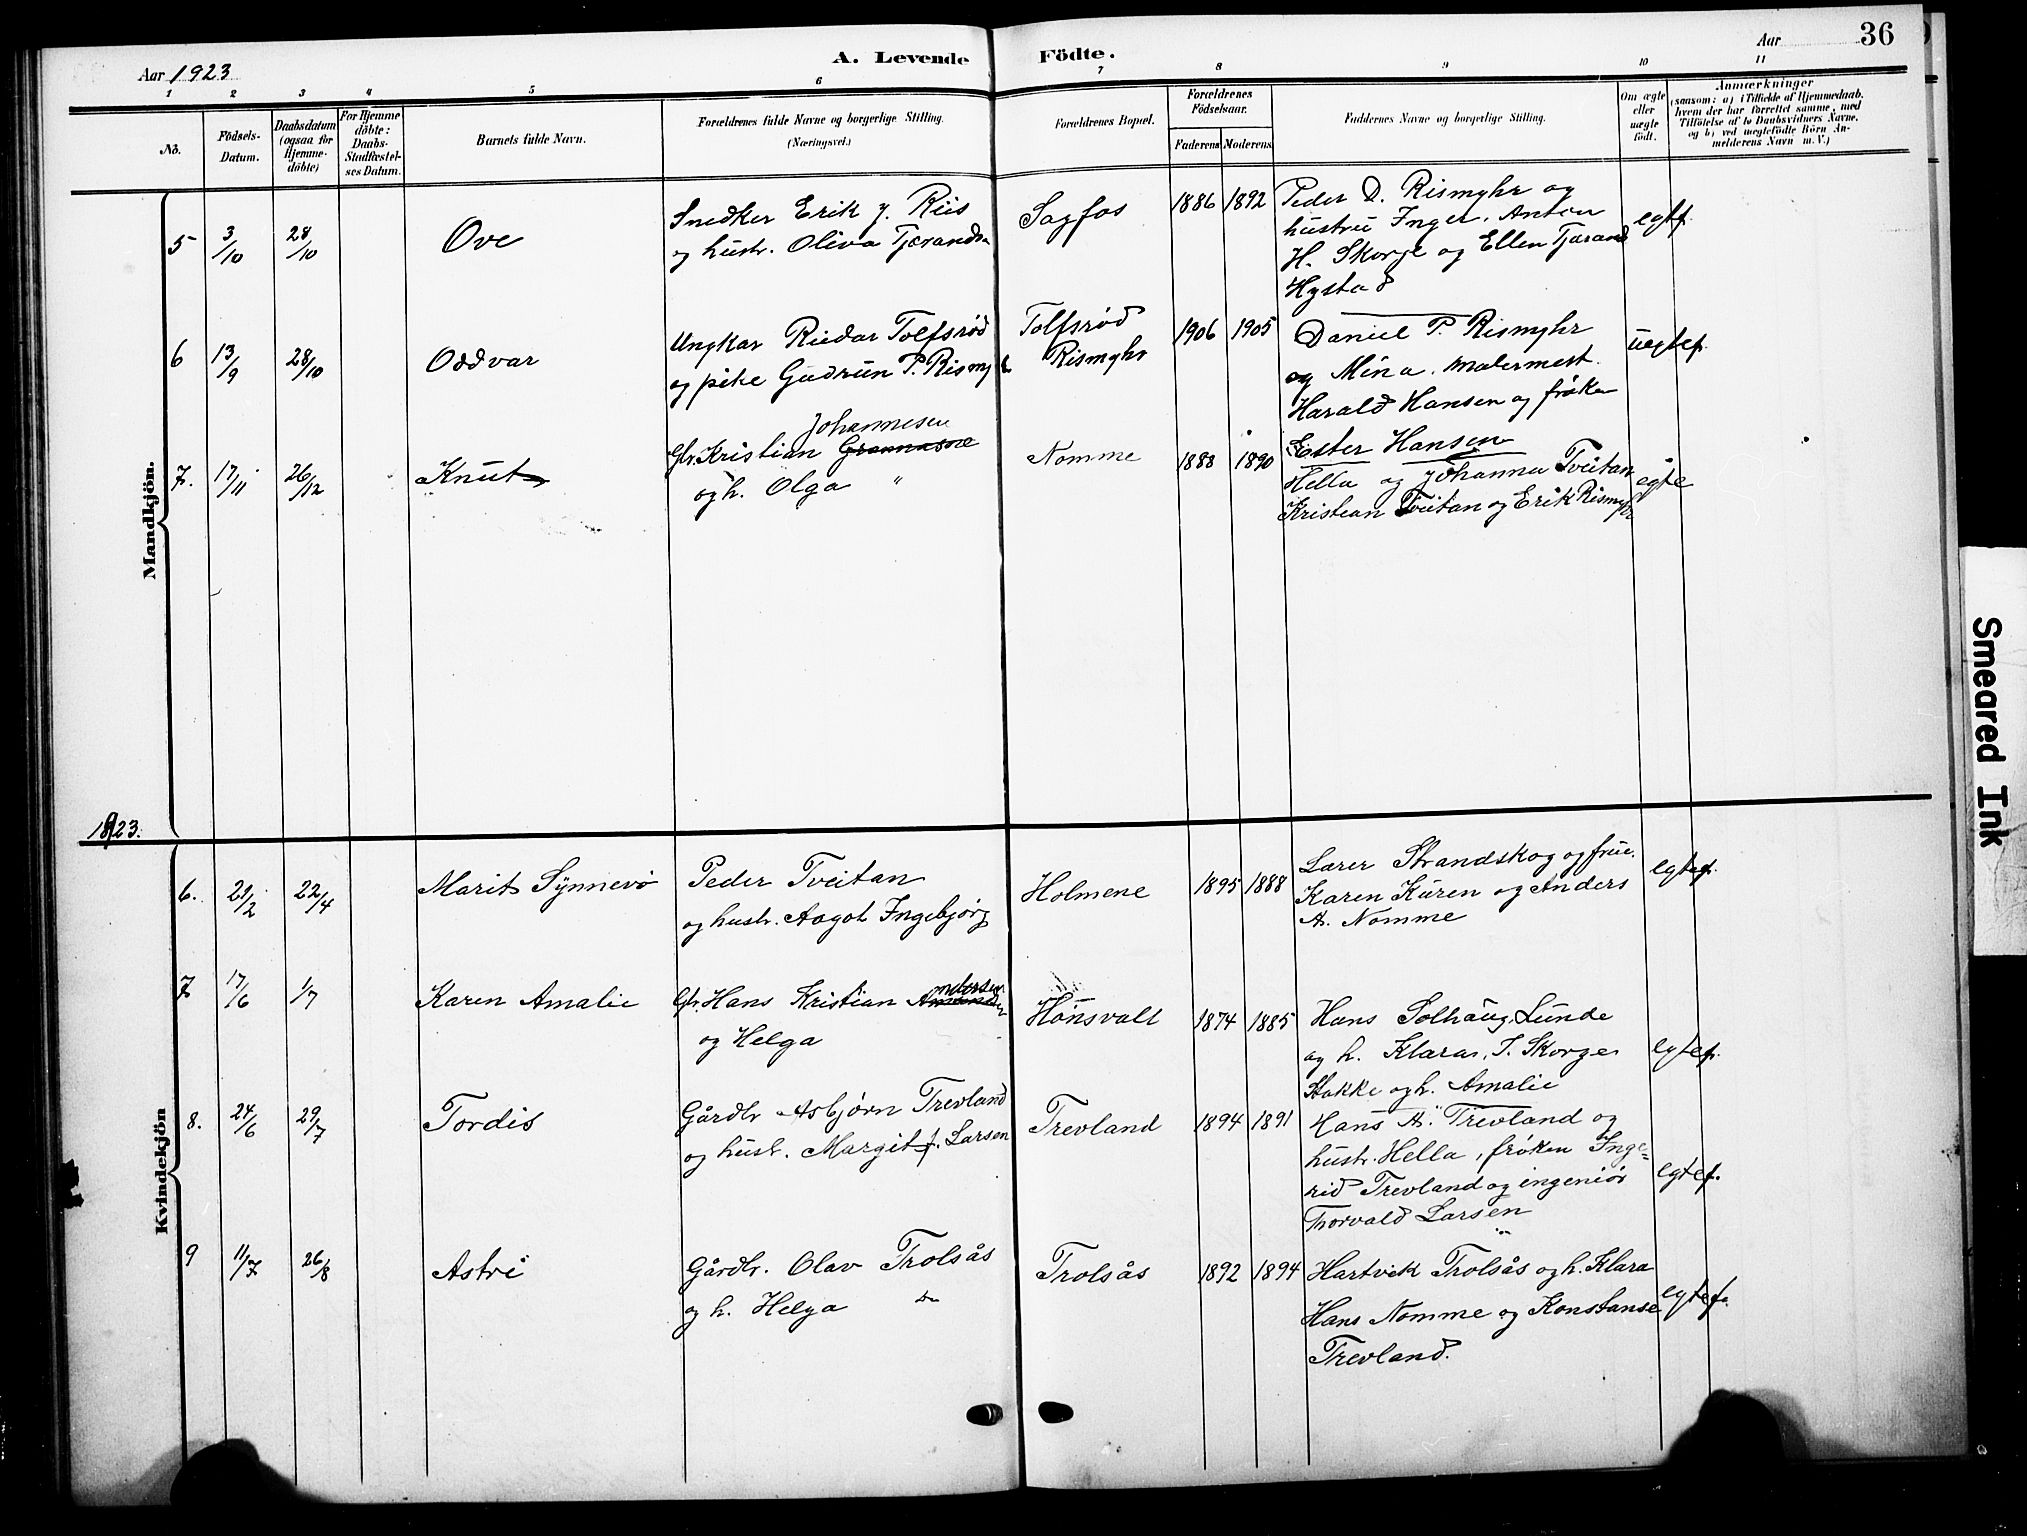 Aar 1923
A. Levende Födte.
Aar
36
1 2 3 4 5 6 7 8 9 10 11
No.
Födsels-Datum.
Daabsdatum (ogsaa for Hjemme-döbte)
For Hjemme döbte: Daabs-Stadfæstel-ses Datum.
Barnets fulde Navn.
Forældrenes fulde Navne og borgerlige Stilling.
(Næringsvei.)
Forældrenes Bopæl.
Forældrenes Födselsaar.
Faderens Moderens
Faddernes Navne og borgerlige Stilling.
Om ægte eller uægte födt.
Anmærkninger
(saasom: a) i Tilfælde af Hjemmedaab.
hvem der har forrettet samme, med
Tilföielse af to Daabsvidners Navne.
og b) ved uægtefödte Börn An-
melderens Navn m.V.)
Mandkjön.
5 3/10 28/10 Ove
Snedker Erik J. Riis
og hustr. Oliva Tjærandsn
Sagfos 1886 1892
Peder D. Rismyhr og
hustru Inger. Anton
H. Skorge og Ellen Tjærand
Hystad
egtf.
6 13/9 28/10 Oddvar
Ungkar Riedar Tolfsrød
og pike Gudrun P. Rismyhr
Tolfsrød
Rismyhr
1906 1905
Daniel P. Rismyhr
og Mina. malermest.
Harald Hansen og frøken
Ester Hansen
uegtef.
7. 17/11 26/12 Knut
Johannesen
Gbr. Kristian
og h. Olga "
Nomme 1888 1890
Hella og Johanna Tveitan
Kristian Tveitan og Erik Rismyhr
egte
1923.
Kvindekjön
6. 21/2 22/4 Marit Synnevø
Peder Tveitan
og hustr. Aagot Ingebjørg
Holmene 1895 1888
Lærer Strandskog og frue.
Karen Kuren og Anders
A. Nomme
egtef.
7 17/6 1/7 Karen Amalie
Gbr. Hans Kristian Andersen
og Helga
Hønsvall 1874 1885
Hans Solhaug, Lunde
og h. Klara, T. Skorge
Stokke og h. Amalie
egtef.
8. 24/6 29/7 Tordis
Gårdbr Asbjørn Trevland
og hust. Margit f. Larsen
Trevland 1894 1891
Hans A. Trevland og
hustr. Hella, frøken Inge=
rid Trevland og ingeniør
Thorvald Larsen
egtef.
9 11/7 26/8 Astri
Gårdbr. Olav Trolsås
og h. Helga "
Trolsås 1892 1894
Hartvik Trolsås og h. Klara
Hans Nomme og Konstanse
Trevland.
egtef.
Smeared Ink